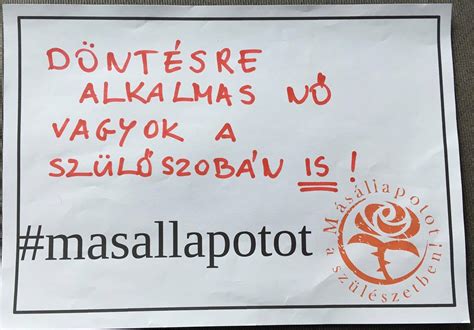 DÖNTÉSRE
ALKALMAS NŐ
VAGYOK A
SZÜLŐSZOBÁN IS!
#masallapotot
Másállapotot
a szülészetben!